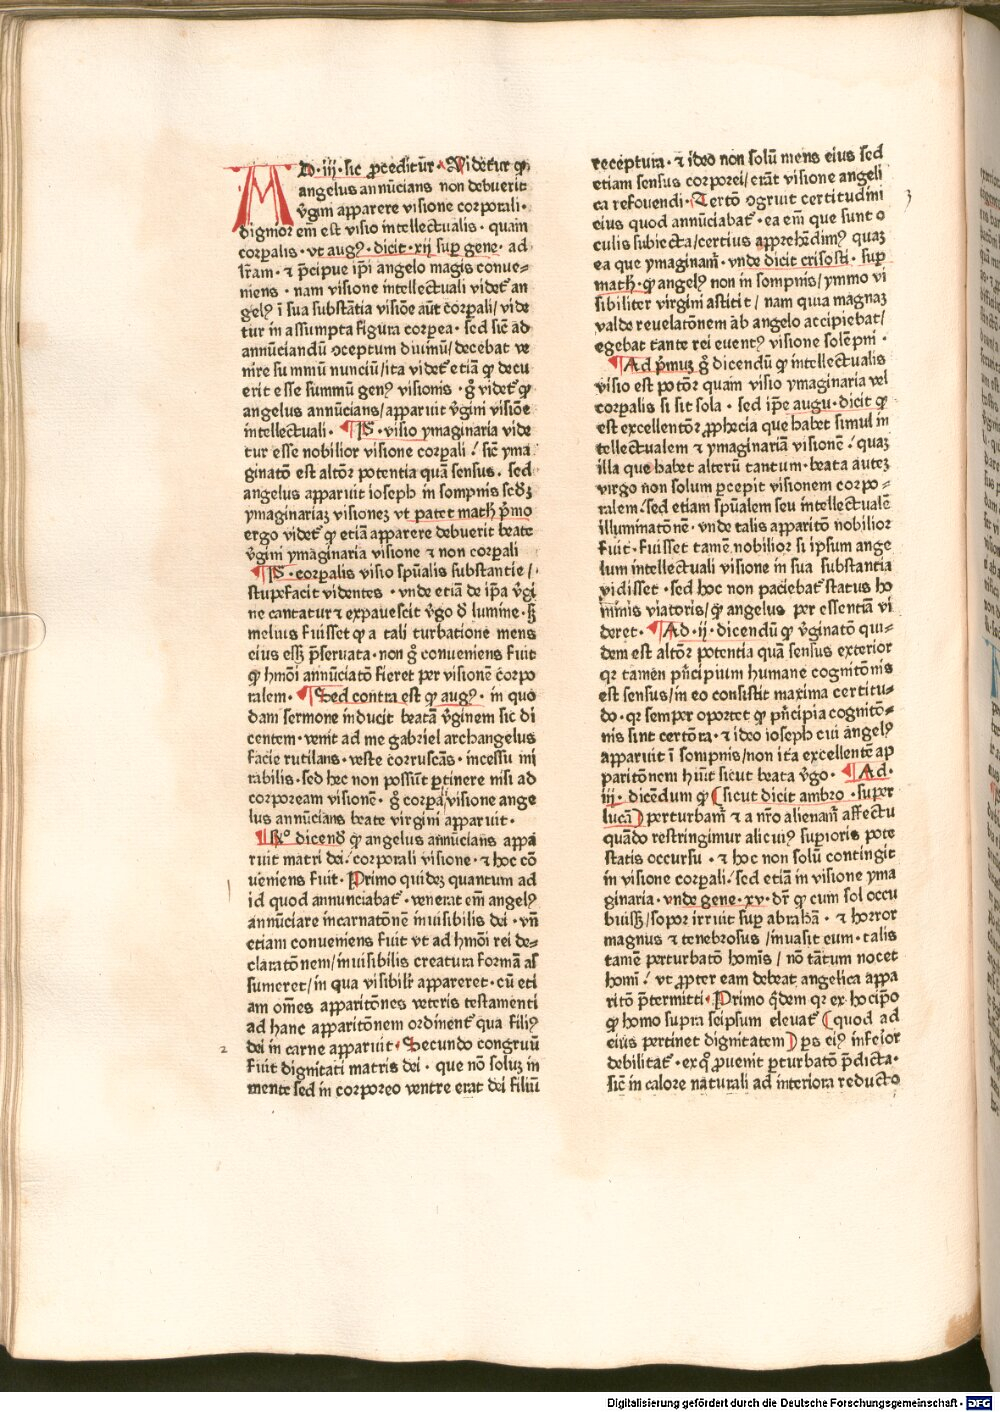 AD·iii·sic ꝓceditur̄·Videtur ꝙ
angelus annūcians non debuerit
v̄gini apparere visione corporali·
dignior em̄ est visio intellectualis· quam
corpalis· vt augꝰ· dicit·xij suꝑ gene· ad
lr̄am· ⁊ p̄cipue ip̄i angelo magis conue⸗
niens· nam visione intellectuali videt᷑ an
gelꝰ ī sua substātia visiōe aūt cor̄pali/vide
tur in assumpta figura corꝑea· sed sic̄ ad
annūciandū ɔceptum diuinū/decebat ve
nire summū nunciū/ita videt᷑ etiā ꝙ decu
erit esse summū genꝰ visionis· gͦ videt᷑ ꝙ
angelus annūcians/apparuit v̄gini visiōe
intellectuali· ¶Iꝭ· visio ymaginaria vide
tur esse nobilior visione cor̄pali/ sic̄ yma
ginatō est altōr potentia quā sensus· sed
angelus apparuit ioseph in sompnis scd̄ꝫ
ymaginariaꝫ visioneꝫ vt patet math̄ p̄mo
ergo videt᷑ ꝙ etiā apparere debuerit beate
v̄gini ymaginaria visione ⁊ non cor̄pali
¶Iꝭ·corꝑalis visio spūalis substantie/
stupefacit videntes· vnde etiā de ip̄a v̄gi
ne cantatur ⁊ expauescit v̄go d̄ lumine·sꝫ
melius fuisset ꝙ a tali turbatione mens
eius essꝫ p̄seruata·non gͦ conueniens fuit
ꝙ hmōi annūciatō fieret per visionē cor̄po
ralem·¶Sed contra est ꝙ augꝰ· in quo
dam sermone inducit beatā v̄ginem sic di
centem·venit ad me gabriel archangelus
facie rutilans·veste corruscās·incessu mi
rabilis·sed hec non possūt ꝑtinere nisi ad
corpoream visionē· gͦ corꝑa/visione ange
lus annūcians beate virgini apparuit·
¶Rͦ dicendū ꝙ angelus annūcians appa
ruit matri dei/corporali visione·⁊ hoc cō
ueniens fuit·Primo quideꝫ quantum ad
id quod annunciabat᷑·venerat em̄ angelꝰ
annūciare incarnatōnē inuisibilis dei·vn̄
etiam conueniens fuit vt ad hmōi rei de⸗
claratōnem/inuisibilis creatura formā as
sumeret/in qua visibilr̄ appareret·cū eti
am om̄es apparitōnes veteris testamenti
ad hanc apparitōnem ordinent᷑ qua filiꝰ
dei in carne apparuit·Secundo congruū
fuit dignitati matris dei· que nō soluꝫ in
mente sed in corporeo ventre erat dei filiū
receptura·⁊ ideo non solū mens eius sed
etiam sensus corporei/erāt visione angeli
ca refouendi·Tertō ɔgruit certitudini
eius quod annūciabat᷑·ea em̄ que sunt o
culis subiecta/certius appreh̄edimꝰ quaꝫ
ea que ymaginam̄·vnde dicit crisosti·suꝑ
math̄·ꝙ angelꝰ non in sompnis/ymmo vi
sibiliter virgini astitit/nam quia magnaꝫ
valde reuelatōnem ab angelo accipiebat/
egebat tante rei euentꝰ visione solēpni·
¶Ad p̄muꝫ gͦ dicendū ꝙ intellectualis
visio est potōr quam visio ymaginaria vel
cor̄palis si sit sola· sed ip̄e augu·dicit ꝙ
est excellentōr ꝓphecia que habet simul in
tellectualem ⁊ ymaginariā visionē/ quaꝫ
illa que habet alterū tantum·beata auteꝫ
virgo non solum ꝑcepit visionem corpo⸗
ralem/sed etiam spūalem seu intellectualē
illuminatōnē·vnde talis apparitō nobilior
fuit·fuisset tamē nobilior si ipsum ange
lum intellectuali visione in sua substantia
vidisset·sed hoc non paciebat᷑ status ho
minis viatoris/ꝙ angelus per essentiā vi
deret·¶Ad·ii·dicendū ꝙ ymaginatō qui⸗
dem est altōr potentia quā sensus exterior
qꝛ tamen p̄ncipium humane cognitōnis
est sensus/in eo consistit maxima certitu⸗
do·qꝛ semper oportet ꝙ p̄ncipia cognitō⸗
nis sint certōra·⁊ ideo ioseph cui angelꝰ
apparuit ī sompnis/non ita excellentē ap
paritōnem hūit sicut beata v̄go·¶Ad·
iii·dicēdum ꝙ(sicut dicit ambro·super
lucā)perturbam̄ ⁊ a nr̄o alienam̄ affectu
quādo restringimur alicuiꝰ suꝑioris pote
statis occursu·⁊ hoc non solū contingit
in visione corpali/sed etiā in visione yma
ginaria·vnde gene·xv·dr̄ ꝙ cum sol occu
buissꝫ/sopor irruit suꝑ abrahā·⁊ horror
magnus ⁊ tenebrosus/inuasit eum·talis
tamē perturbatō homīs/nō tātum nocet
homī/ vt ꝓpter eam debeat angelica appa
ritō p̄termitti·Primo qͥdem qꝛ ex hoc ip̄o
ꝙ homo supra seipsum eleuat᷑(quod ad
eius pertinet dignitatem)ꝑs eiꝰ infeior
debilitat᷑·ex qͦ ꝓuenit ꝑturbatō p̄dicta·
sic̄ in calore naturali ad interiora reducto
2
3
Digitalisierung gefördert durch die Deutsche Forschungsgemeinschaft - DFG